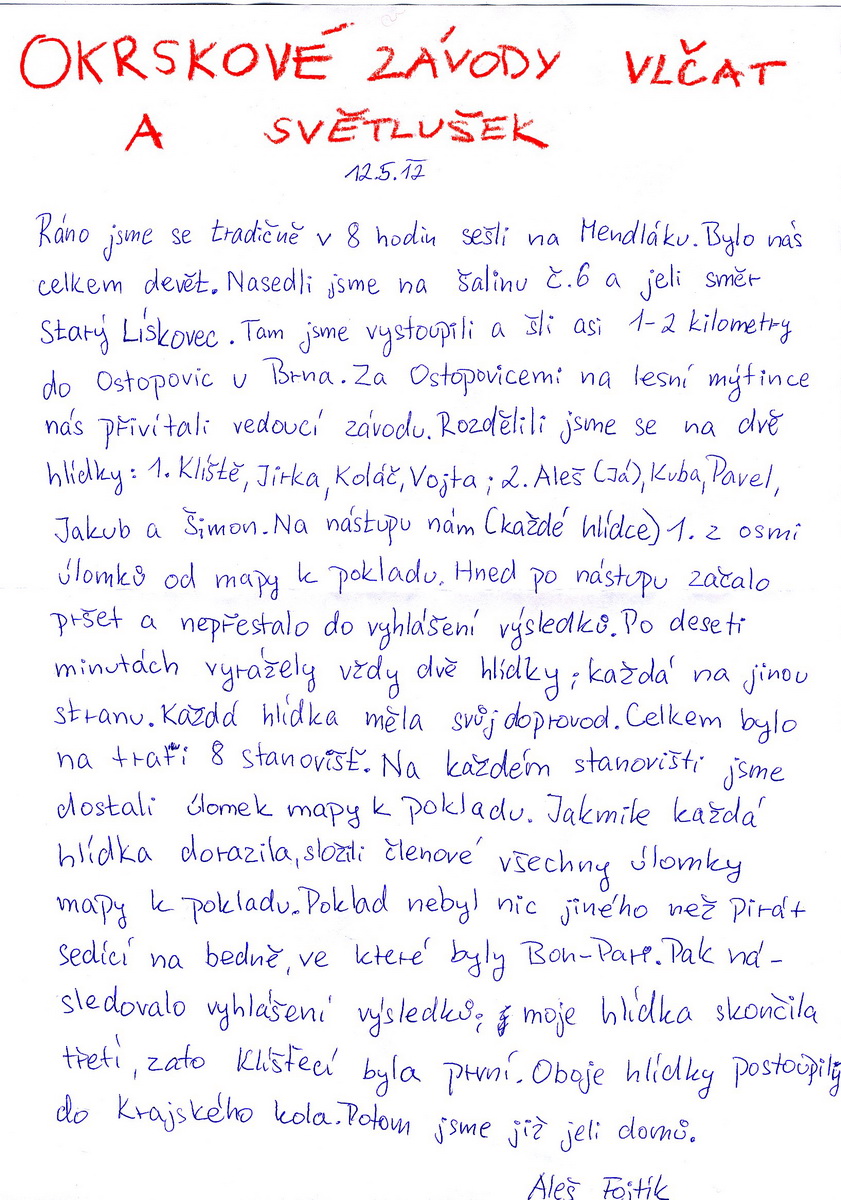 OKRSKOVÉ ZÁVODY VLČAT
A SVĚTLUŠEK
12.5.12
Ráno jsme se tradičně v 8 hodin sešli na Mendláku. Bylo nás
celkem devět. Nasedli jsme na šalinu č.6 a jeli směr
Starý Lískovec. Tam jsme vystoupili a šli asi 1-2 kilometry
do Ostopovic u Brna. Za Ostopovicemi na lesní mýtince
nás přivítali vedoucí závodu. Rozdělili jsme se na dvě
hlídky: 1. Klíště, Jirka, Koláč, Vojta; 2. Aleš (Já), Kuba, Pavel,
Jakub a Šimon. Na nástupu nám (každé hlídce) 1. z osmi
úlomků od mapy k pokladu. Hned po nástupu začalo
pršet a nepřestalo do vyhlášení výsledků. Po deseti
minutách vyrážely vždy dvě hlídky; každá na jinou
stranu. Každá hlídka měla svůj doprovod. Celkem bylo
na trati 8 stanovišť. Na každém stanovišti jsme
dostali úlomek mapy k pokladu. Jakmile každá
hlídka dorazila, složili členové všechny úlomky
mapy k pokladu. Poklad nebyl nic jiného než pirát
sedící na bedně, ve které byly Bon-Pari. Pak ná-
sledovalo vyhlášení výsledků; moje hlídka skončila
třetí, zato Klíštěcí byla první. Oboje hlídky postoupily
do Krajského kola. Potom jsme již jeli domů.
Aleš Fojtík